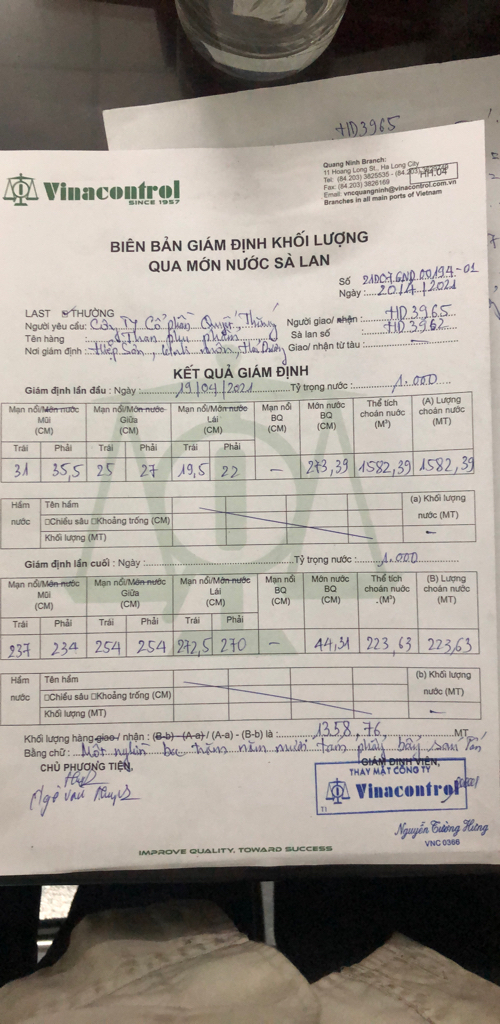 HD3965
Quang Ninh Branch:
11 Hoang Long St., Ha Long City
Tel: (84.203) 3825535 - (84.203)
Fax: (84.203) 3826169
HH.04
Email: vncquangninh@vinacontrol.com.vn
Branches in all main ports of Vietnam
Vinacontrol
SINCE 1957
BIÊN BẢN GIÁM ĐỊNH KHỐI LƯỢNG
QUA MỚN NƯỚC SÀ LAN
Số 21DC7GND00194-01
Ngày 20/4/2021
LAST THƯỜNG
Người yêu cầu: Công Ty Cổ phần Quyết Thắng Người giao/ nhận : HD3965
Tên hàng : Than phụ phẩm Sà lan số : HD3962
Nơi giám định : Hiệp Sơn, Kinh Môn, Hải Dương Giao/ nhận từ tàu :
KẾT QUẢ GIÁM ĐỊNH
Giám định lần đầu : Ngày : 19/04/2021 Tỷ trọng nước : 1.000
Mạn nổi/Mớn nước Mũi (CM) Mạn nổi/Mớn nước Giữa (CM) Mạn nổi/Mớn nước Lái (CM) Mạn nổi BQ (CM) Mớn nước BQ (CM) Thể tích choán nước (M³) (A) Lượng choán nước (MT)
Trái Phải Trái Phải Trái Phải
31 35,5 25 27 19,5 22 – 273,39 1582,39 1582,39
Hầm nước Tên hầm (a) Khối lượng nước (MT)
☐Chiều sâu ☐Khoảng trống (CM)
Khối lượng (MT) –
Giám định lần cuối : Ngày : Tỷ trọng nước : 1.000
Mạn nổi/Mớn nước Mũi (CM) Mạn nổi/Mớn nước Giữa (CM) Mạn nổi/Mớn nước Lái (CM) Mạn nổi BQ (CM) Mớn nước BQ (CM) Thể tích choán nước (M³) (B) Lượng choán nước (MT)
Trái Phải Trái Phải Trái Phải
237 234 254 254 272,5 270 – 44,31 223,63 223,63
Hầm nước Tên hầm (b) Khối lượng nước (MT)
☐Chiều sâu ☐Khoảng trống (CM)
Khối lượng (MT) –
Khối lượng hàng giao / nhận : (B-b) - (A-a) / (A-a) - (B-b) là : 1358,76 MT
Bằng chữ : Một nghìn ba trăm năm mươi tám phẩy bẩy sáu Tấn
CHỦ PHƯƠNG TIỆN, GIÁM ĐỊNH VIÊN,
THAY MẶT CÔNG TY
Vinacontrol
TI
Nguyễn Tường Hưng
VNC 0366
IMPROVE QUALITY, TOWARD SUCCESS